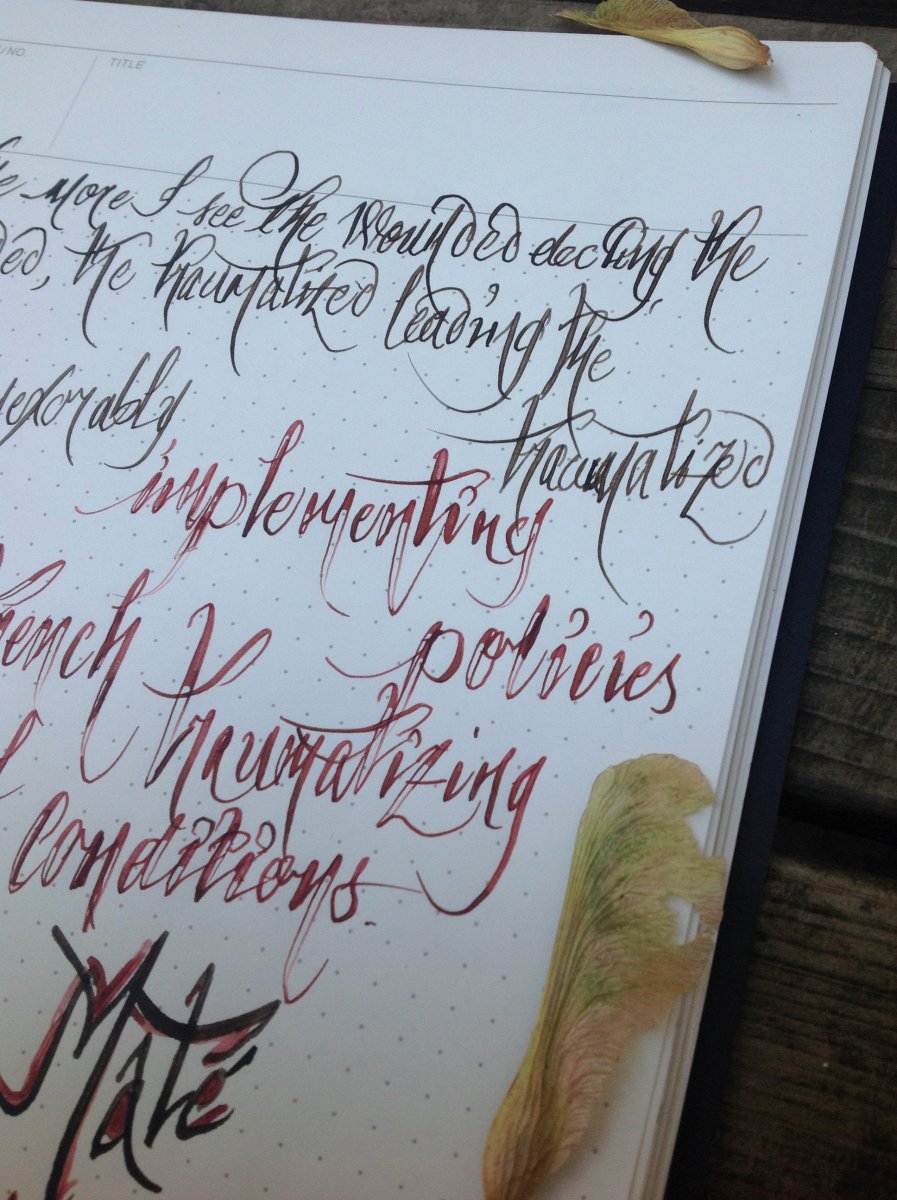 /NO. TITLE
e more I see the Wounded electing the
ded, the traumatized leading the
traumatized
nexorably
implementing
policies
trench
traumatizing
conditions.
Maté